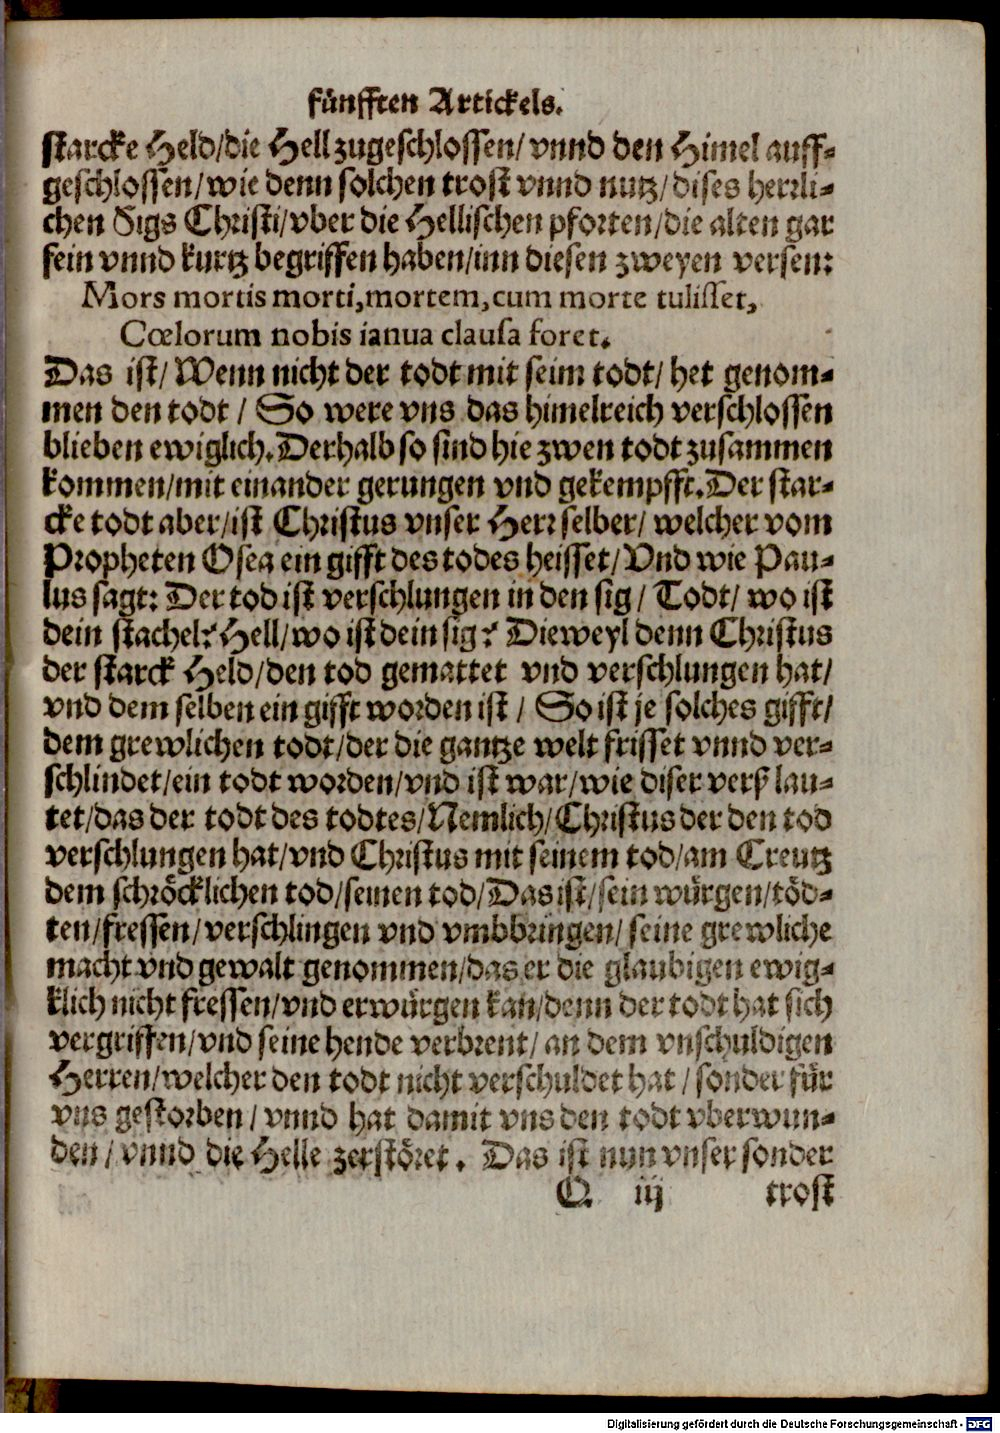 fünfften Artickels.
starcke Held/die Hell zugeschlossen/ vnnd den Himel auff-
geschlossen/wie denn solchen trost vnnd nutz/dises herrli-
chen Sigs Christi/vber die Hellischen pforten/die alten gar
fein vnnd kurtz begriffen haben/inn diesen zweyen versen:
Mors mortis morti, mortem, cum morte tulisset,
Cœlorum nobis ianua clausa foret.
Das ist/ Wenn nicht der todt mit seim todt/ het genom-
men den todt / So were vns das himelreich verschlossen
blieben ewiglich. Derhalb so sind hie zwen todt zusammen
kommen/mit einander gerungen vnd gekempfft. Der star-
cke todt aber/ist Christus vnser Herr selber/ welcher vom
Propheten Osea ein gifft des todes heisset/ Vnd wie Pau-
lus sagt: Der tod ist verschlungen in den sig / Todt/ wo ist
dein stachel? Hell/wo ist dein sig? Dieweyl denn Christus
der starck Held/den tod gemattet vnd verschlungen hat/
vnd dem selben ein gifft worden ist / So ist je solches gifft/
dem grewlichen todt/der die gantze welt frisset vnnd ver-
schlindet/ein todt worden/vnd ist war/wie diser verß lau-
tet/das der todt des todtes/Nemlich/Christus der den tod
verschlungen hat/vnd Christus mit seinem tod/am Creutz
dem schröcklichen tod/seinen tod/Das ist/sein würgen/töd-
ten/fressen/verschlingen vnd vmbbringen/ seine grewliche
macht vnd gewalt genommen/das er die glaubigen ewig-
klich nicht fressen/vnd erwürgen kan/denn der todt hat sich
vergriffen/vnd seine hende verbrent/ an dem vnschuldigen
Herren/welcher den todt nicht verschuldet hat / sonder für
vns gestorben / vnnd hat damit vns den todt vberwun-
den / vnnd die Helle zerstöret. Das ist nun vnser sonder
Q iij trost
Digitalisierung gefördert durch die Deutsche Forschungsgemeinschaft - DFG